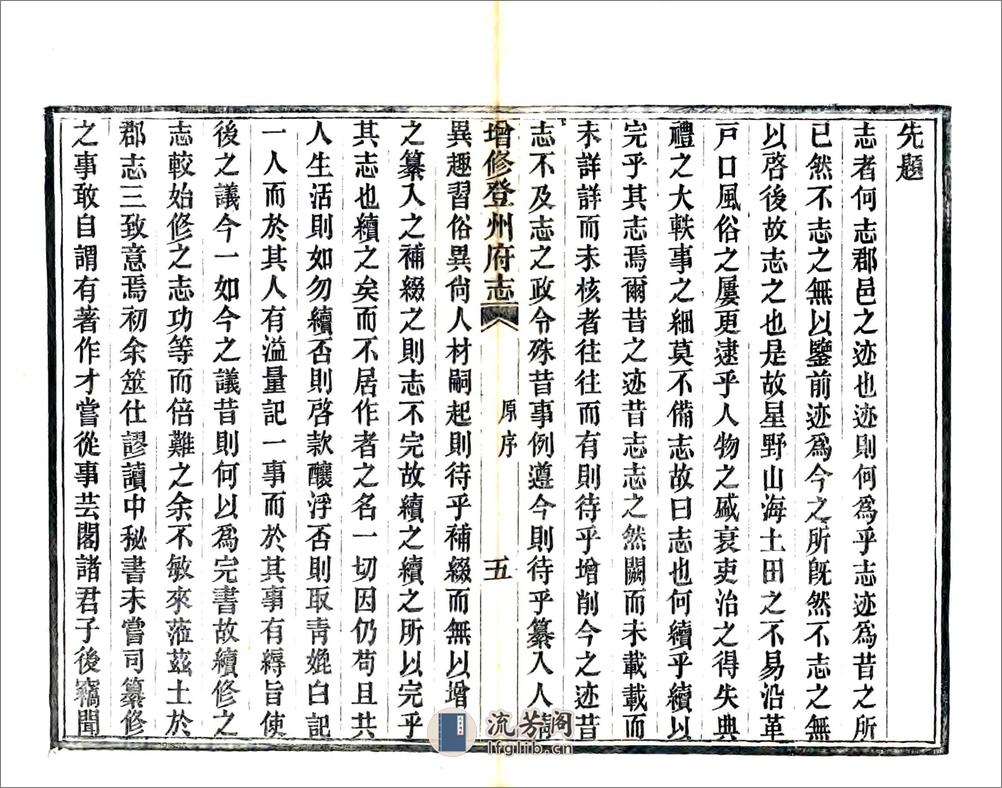 先題
志者何志郡邑之迹也迹則何爲乎志迹爲昔之所
已然不志之無以鑒前迹爲今之所旣然不志之無
以啓後故志之也是故星野山海土田之不易沿革
戸口風俗之屢更逮乎人物之盛衰吏治之得失典
禮之大軼事之細莫不備志故曰志也何續乎續以
完乎其志焉爾昔之迹昔志志之然闕而未載載而
未詳詳而未核者往往而有則待乎增削今之迹昔
志不及志之政令殊昔事例遵今則待乎纂入人
增修登州府志
原序
五
異趣習俗異尙人材嗣起則待乎補綴而無以增
之纂入之補綴之則志不完故續之續之所以完乎
其志也續之矣而不居作者之名一切因仍苟且共
人生活則如勿續否則啓款釀浮否則取靑媲白記
一人而於其人有溢量記一事而於其事有縟旨使
後之議今一如今之議昔則何以爲完書故續修之
志較始修之志功等而倍難之余不敏來蒞茲土於
郡志三致意焉初余筮仕謬讀中秘書未嘗司纂修
之事敢自謂有著作才嘗從事芸閣諸君子後竊聞
流芳阁
lfglib.cn